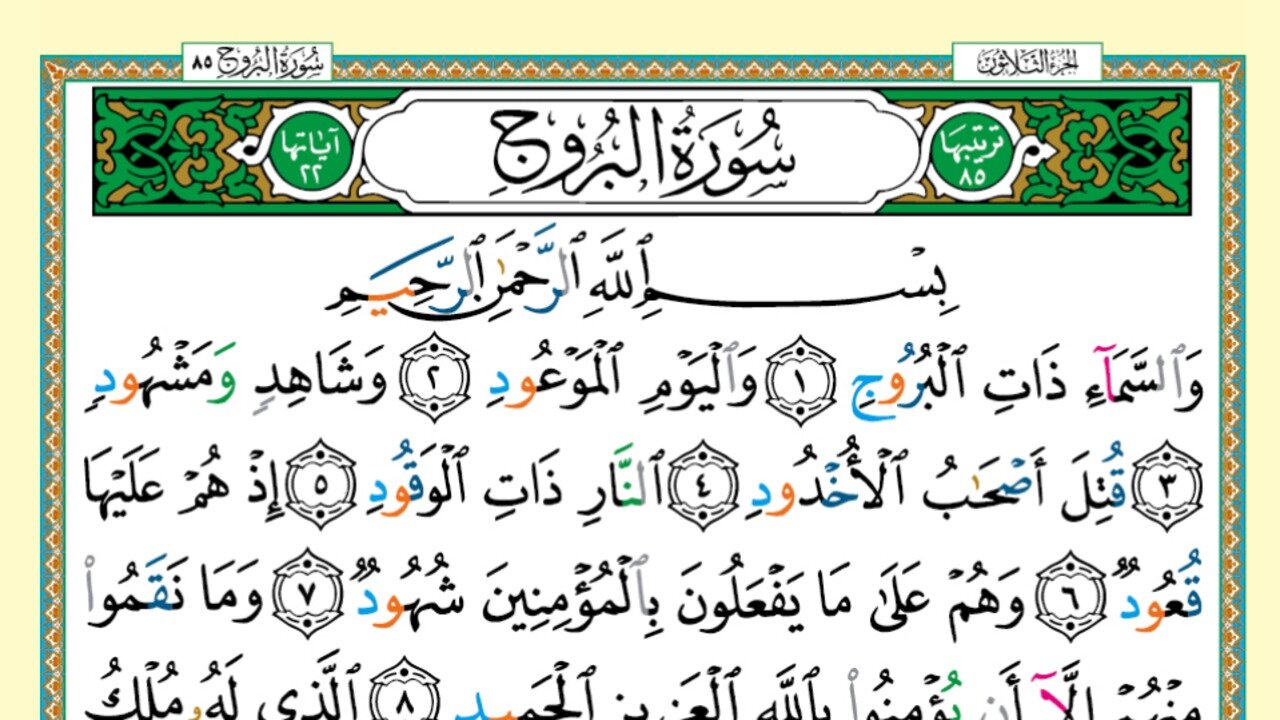 الجزء الثلاثون
سورة البروج ٨٥
ترتيبها ٨٥
سُورَةُ البُرُوجِ
آياتها ٢٢
بِسْمِ ٱللَّهِ ٱلرَّحْمَٰنِ ٱلرَّحِيمِ
وَٱلسَّمَآءِ ذَاتِ ٱلْبُرُوجِ ١ وَٱلْيَوْمِ ٱلْمَوْعُودِ ٢ وَشَاهِدٍ وَمَشْهُودٍ
٣ قُتِلَ أَصْحَٰبُ ٱلْأُخْدُودِ ٤ ٱلنَّارِ ذَاتِ ٱلْوَقُودِ ٥ إِذْ هُمْ عَلَيْهَا
قُعُودٌ ٦ وَهُمْ عَلَىٰ مَا يَفْعَلُونَ بِٱلْمُؤْمِنِينَ شُهُودٌ ٧ وَمَا نَقَمُوا۟
مِنْهُمْ إِلَّآ أَن يُؤْمِنُوا۟ بِٱللَّهِ ٱلْعَزِيزِ ٱلْحَمِيدِ ٨ ٱلَّذِى لَهُۥ مُلْكُ